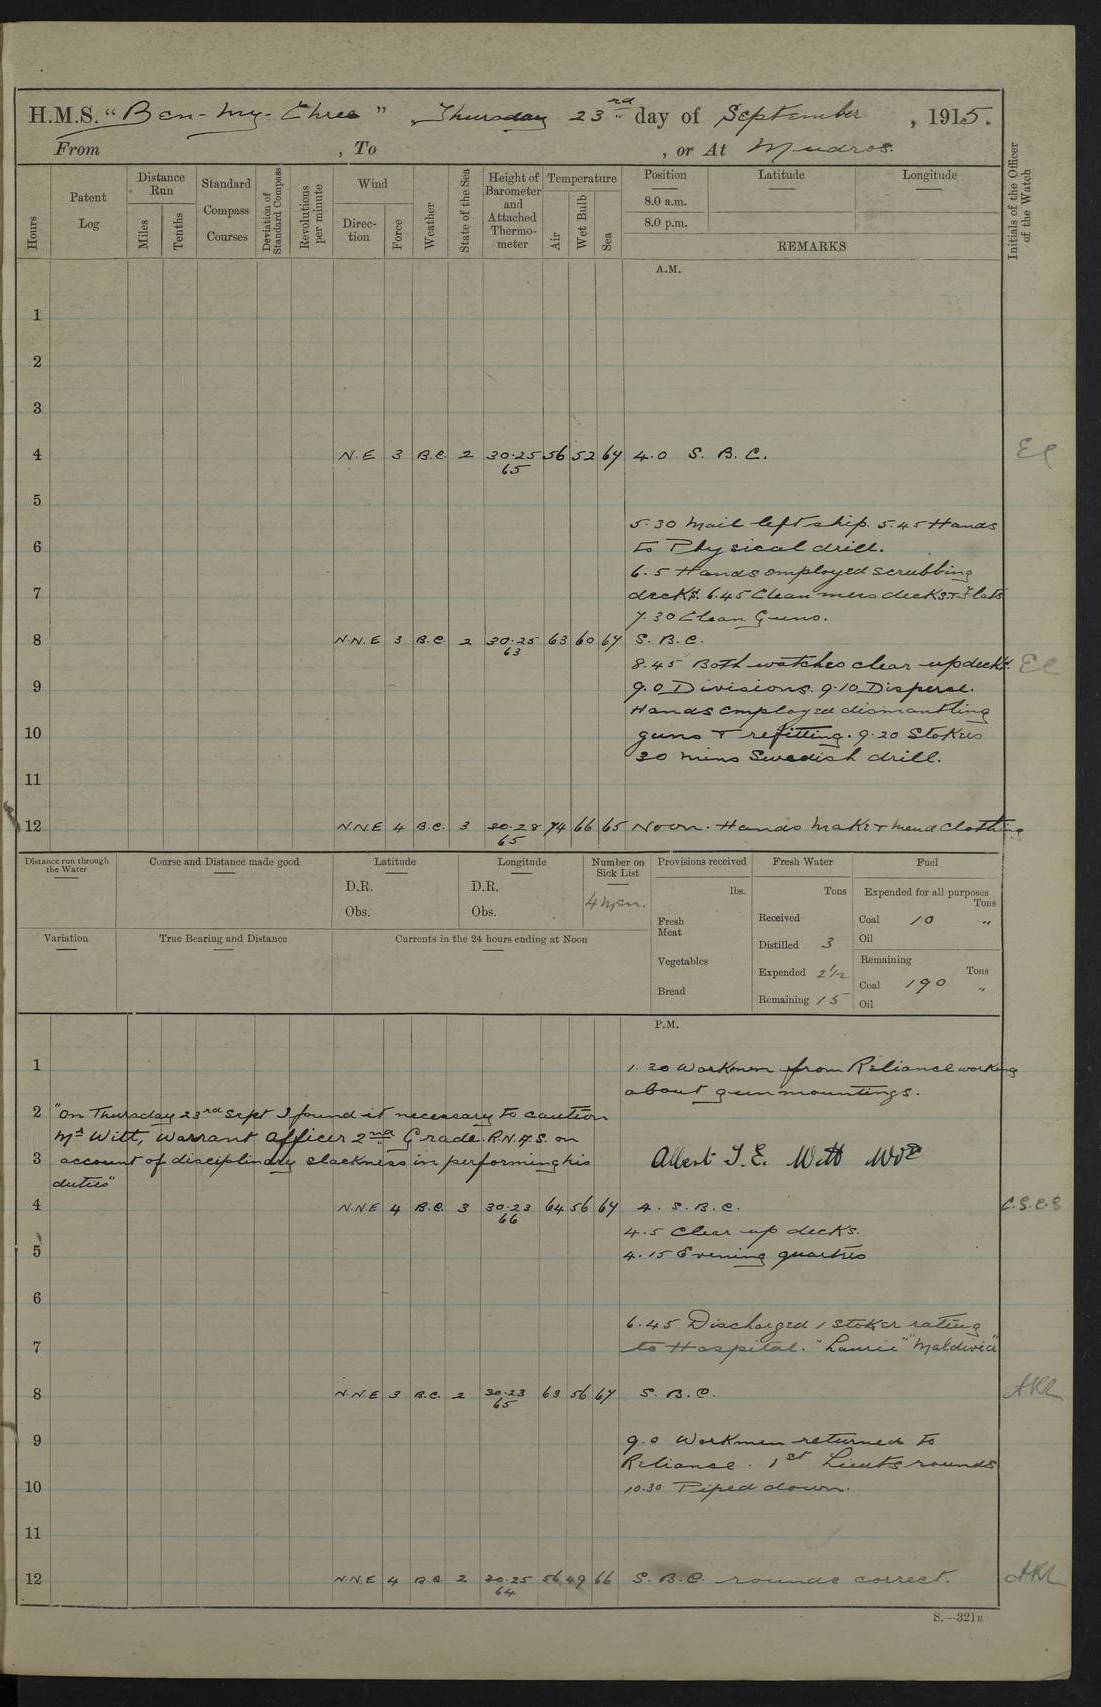 H.M.S. "Ben-my-Chree" Thursday 23rd day of September, 1915.
From , To , or At Mudros.
Hours
Patent Log
Distance Run
Miles
Tenths
Standard Compass Courses
Deviation of Standard Compass
Revolutions per minute
Wind
Direction
Force
Weather
State of the Sea
Height of Barometer and Attached Thermometer
Temperature
Air
Wet Bulb
Sea
Position
8.0 a.m.
8.0 p.m.
Latitude
Longitude
REMARKS
Initials of the Officer of the Watch
A.M.
1
2
3
4 N.E 3 B.C. 2 30.25 65 56 52 67 4.0 S. B. C.
5
5.30 Mail left ship. 5.45 Hands
6 to Physical drill.
6.5 Hands employed scrubbing
7 decks. 6.45 Clean mess decks & Flats
7.30 Clean Guns.
8 N.N.E 3 B.C. 2 30.25 63 63 60 67 S. B. C.
8.45 Both watches clear up decks.
9 9.0 Divisions. 9.10 Disperse.
Hands employed dismantling
10 guns & refitting. 9.20 Stokers
30 mins Swedish drill.
11
12 N.N.E 4 B.C. 3 30.28 65 74 66 65 Noon. Hands make & mend clothing
Distance run through the Water
Course and Distance made good
Latitude
D.R.
Obs.
Longitude
D.R.
Obs.
Number on Sick List
4 men.
Provisions received
lbs.
Fresh Meat
Vegetables
Bread
Fresh Water
Tons
Received
Distilled 3
Expended 2 1/2
Remaining 15
Fuel
Expended for all purposes
Tons
Coal 10 "
Oil
Remaining
Tons
Coal 190 "
Oil
Variation
True Bearing and Distance
Currents in the 24 hours ending at Noon
P.M.
1 1.20 Workmen from Reliance working
about gun mountings.
2 "On Thursday 23rd Sept I found it necessary to caution
Mr Witt, Warrant Officer 2nd Grade. R.N.A.S. on
3 account of disciplinary slackness in performing his Albert T. E. Witt
duties"
4 N.N.E 4 B.C. 3 30.23 66 64 56 67 4. S. B. C. C.S.C.S
4.5 Clear up decks.
5 4.15 Evening quarters
6
6.45 Discharged 1 Stoker rating
7 to Hospital. "Laurie" "Maldivia"
8 N.N.E 3 B.C. 2 30.23 65 63 56 67 S. B. C.
9 9.0 Workmen returned to
Reliance. 1st Lieuts rounds
10 10.30 Piped down.
11
12 N.N.E 4 B.C. 2 30.25 64 56 49 66 S. B. C. rounds correct.
S.—321B